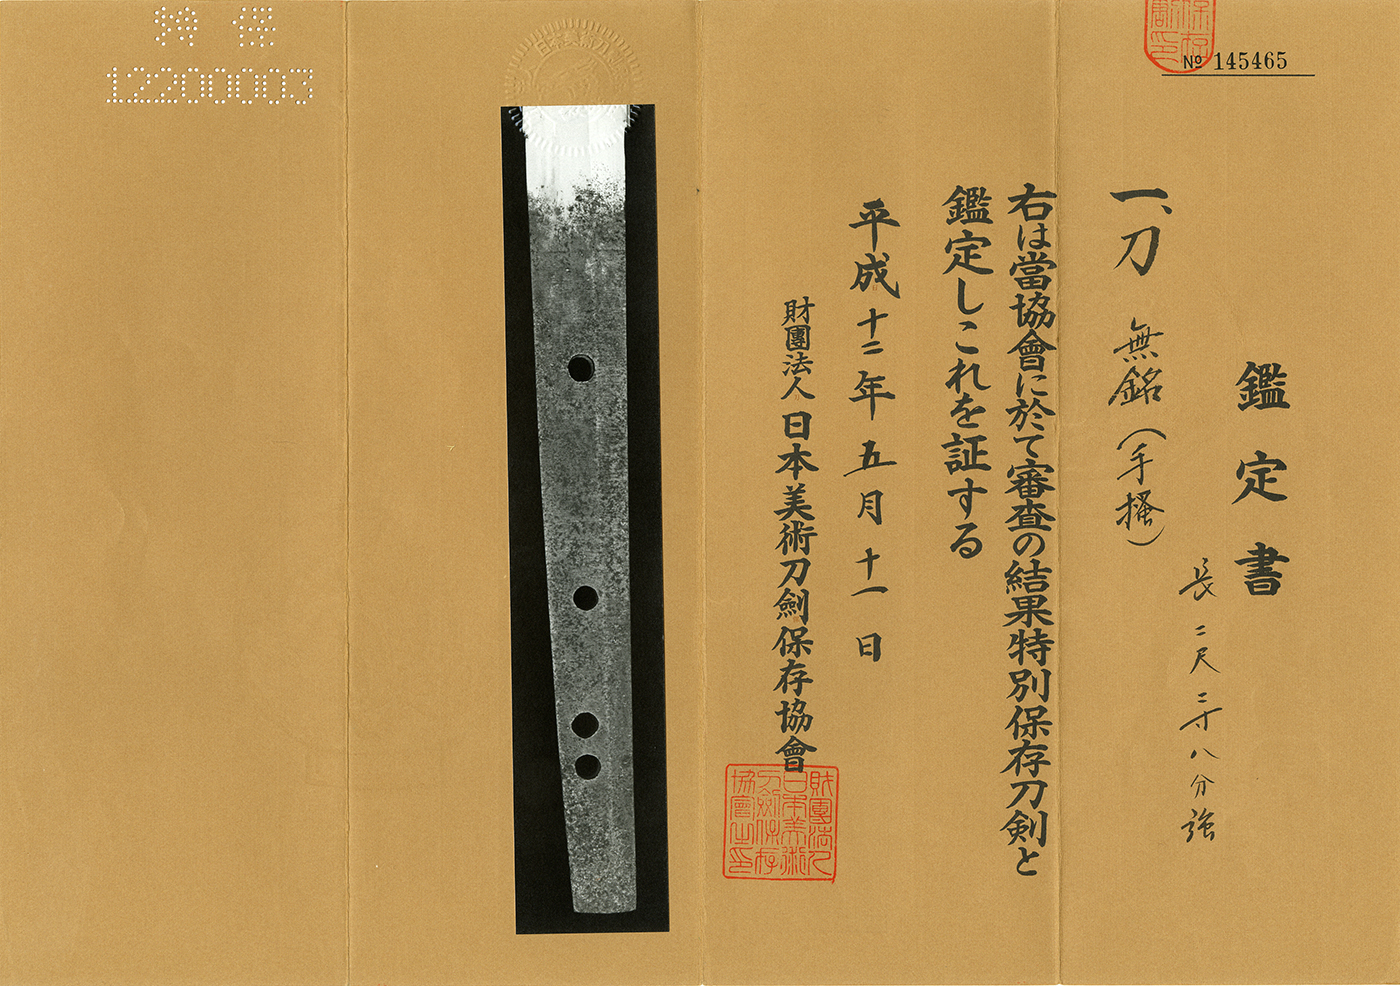 № 145465
鑑定書
長 二尺三寸八分強
一、刀 無銘(手掻)
右は當協會に於て審査の結果特別保存刀剣と
鑑定しこれを証する
平成十二年五月十一日
財團法人 日本美術刀劍保存協會
財團法人日本美術刀劍保存協會之印
日本美術刀
12200003